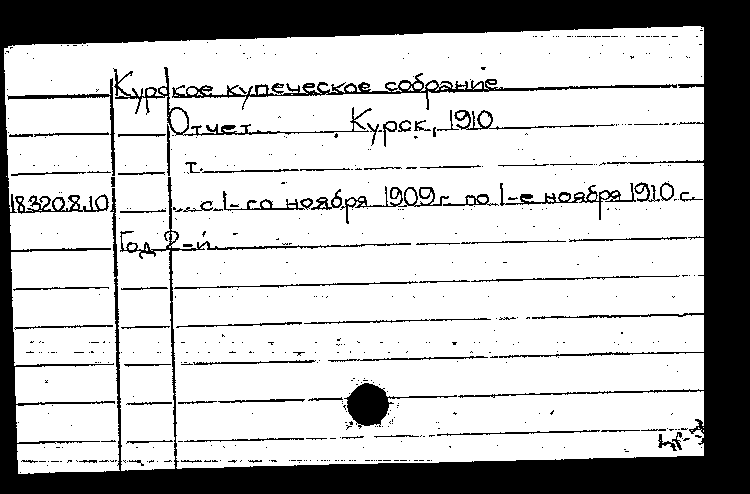 Курское купеческое собрание.
Отчет... . Курск, 1910.
т.
18320.8.10 ... с 1-го ноября 1909 г. по 1-е ноября 1910 г.
Год 2-й.